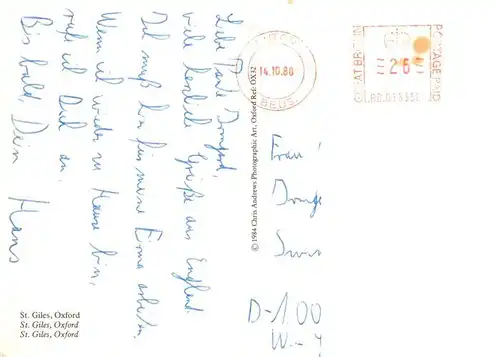 Liebe Tante Irmgard,
viele herzliche Grüße aus England.
Ich muß hier für meine Firma arbeiten.
Wenn ich wieder zu Hause bin,
rufe ich Dich an.
Bis bald, Dein
Hans
St. Giles, Oxford
St. Giles, Oxford
St. Giles, Oxford
© 1984 Chris Andrews Photographic Art, Oxford Ref: OX32
14.10.86
BEDS.
GREAT BRITAIN
POSTAGE PAID
26
Frau
D-100
W-